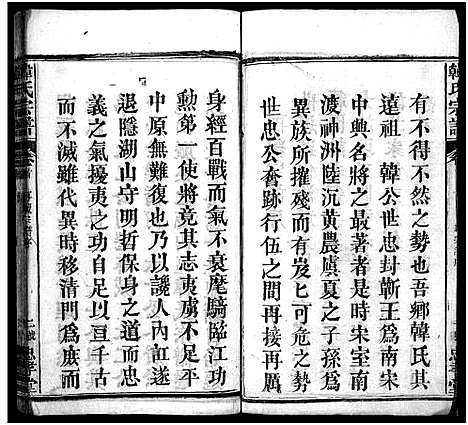 韓氏宗譜
有不得不然之勢也吾鄉韓氏其
遠祖 韓公世忠封蘄王爲南宋
中興名將之最著者是時宋室南
渡神洲陸沉黃農虞夏之子孫爲
異族所摧殘而有岌岌可危之勢
世忠公奮跡行伍之間
身經百戰而氣不衰麾騎臨江功
勲第一使將竟其志夷虜不足平
中原無難復也乃以讒人內缸遂
退隱湖山守明哲保身之道而忠
義之氣攘夷之功自足以亘千古
而不滅雖代異時移清門爲庶而
韓氏宗譜